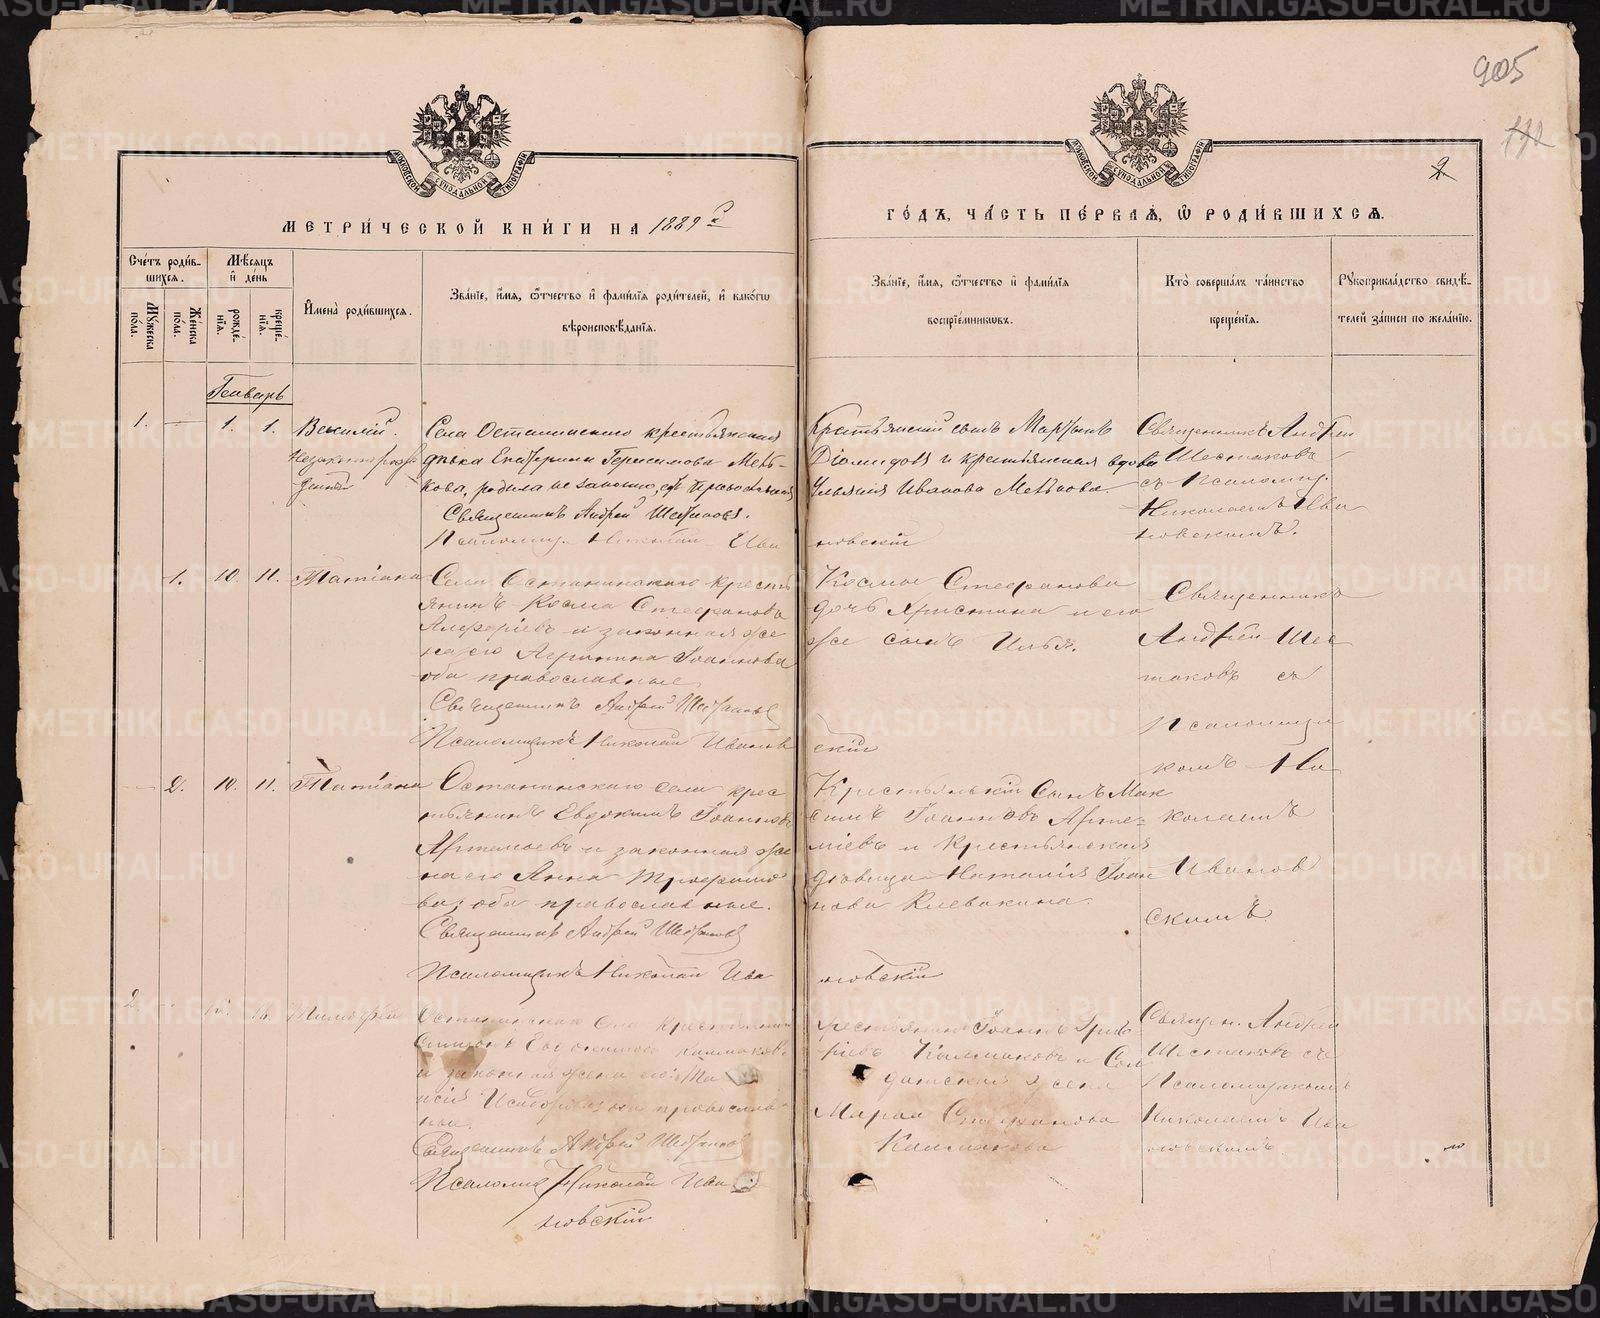 905
2
МЕТРИ́ЧЕСКОЙ КНИ́ГИ НА 1889 г.
ГО́ДЪ, ЧА́СТЬ ПЕ́РВАЯ, Ѿ РОДИ́ВШИХСЯ.
Сче́тъ роди́в-
шихся.
Му́жеска пола.
Же́нска пола.
Мѣ́сяцъ и де́нь
рожде́-
нїя.
креще́-
нїя.
И҆мена̀ роди́вшихся.
Зва́нїе, и҆́мя, ѻ҆́тчество и҆ фами́лїя роди́телей, и҆ како́гѡ
вѣроисповѣ́данїя.
Зва́нїе, и҆́мя, ѻ҆́тчество и҆ фами́лїя
воспрїе́мникѡвъ.
Кто̀ соверша́лъ та́инство
креще́нїя.
Рꙋкоприкла́дство свидѣ́-
телей за́писи по жела́нїю.
Генварь
1. 1. 1. Василій.
Незаконнорож
денный
Села Останинскаго крестьянская
дѣвка Екатерина Герасимова Мень-
кова, родила не законно,
Священникъ Андрей Шестаковъ.
Псаломщ. Николай Ива
новскій
Крестьянскій сынъ
Діомидовъ и крестьянская вдова
Ульянія Иванова
Священникъ Андрей
Шестаковъ
съ Псаломщ.
Николаемъ Ива
новскимъ.
1. 10. 11. Татіана
Села Останинскаго кресть
янинъ Косма Стефановъ
Алферіевъ и законная же
на его Агрипина Іоаннова
оба православные
Священникъ Андрей Шестаковъ
Псаломщикъ Николай Иванов
скій
Космы Стефанова
дочь Христина и его
же сынъ Илья.
Священникъ
Андрей Шес
таковъ съ
Псаломщи
комъ Ни
колаемъ
Иванов
скимъ
2. 10. 11. Татіана
Останинскаго села крес
тьянинъ Евдокимъ Іоанновъ
Артемьевъ и законная же
на его Анна Трофимо
ва, оба православные.
Священникъ Андрей Шестаковъ
Псаломщикъ Николай Ива
новскій
Крестьянскій сынъ Мак
симъ Іоанновъ Арте=
міевъ и крестьянская
дѣвица Наталія Іоан
нова Клевакина.
2
Останинскаго села крестьянинъ
Калмаковъ
и законная жена его
православ
ные.
Священникъ Андрей Шестаковъ
Псаломщ. Николай Ива
новскій
Крестьянинъ Іоаннъ
Калмаковъ и Сол
датская жена
Марѳа Стефанова
Калмакова
Священ. Андрей
Шестаковъ съ
Псаломщикомъ
Николаемъ Ива
новскимъ.
METRIKI.GASO-URAL.RU